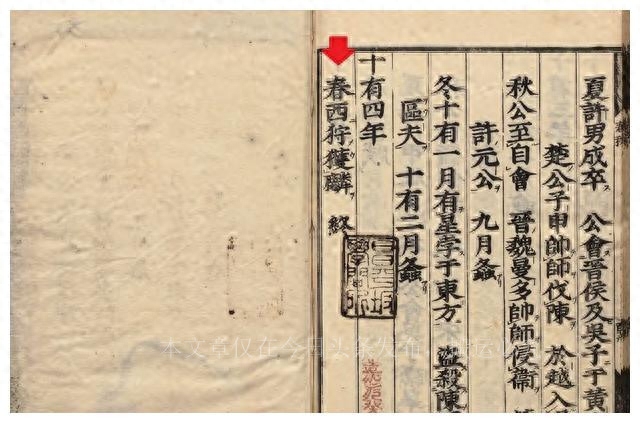 夏許男成卒　公會晉侯及吳子于黃
楚公子申帥師伐陳　於越入
秋公至自會　晉魏曼多帥師侵衞
許元公　九月螽
冬十有一月有星孛于東方　盜殺陳
區夫　十有二月螽
十有四年
春西狩獲麟　終
本文章仅在今日头条发布